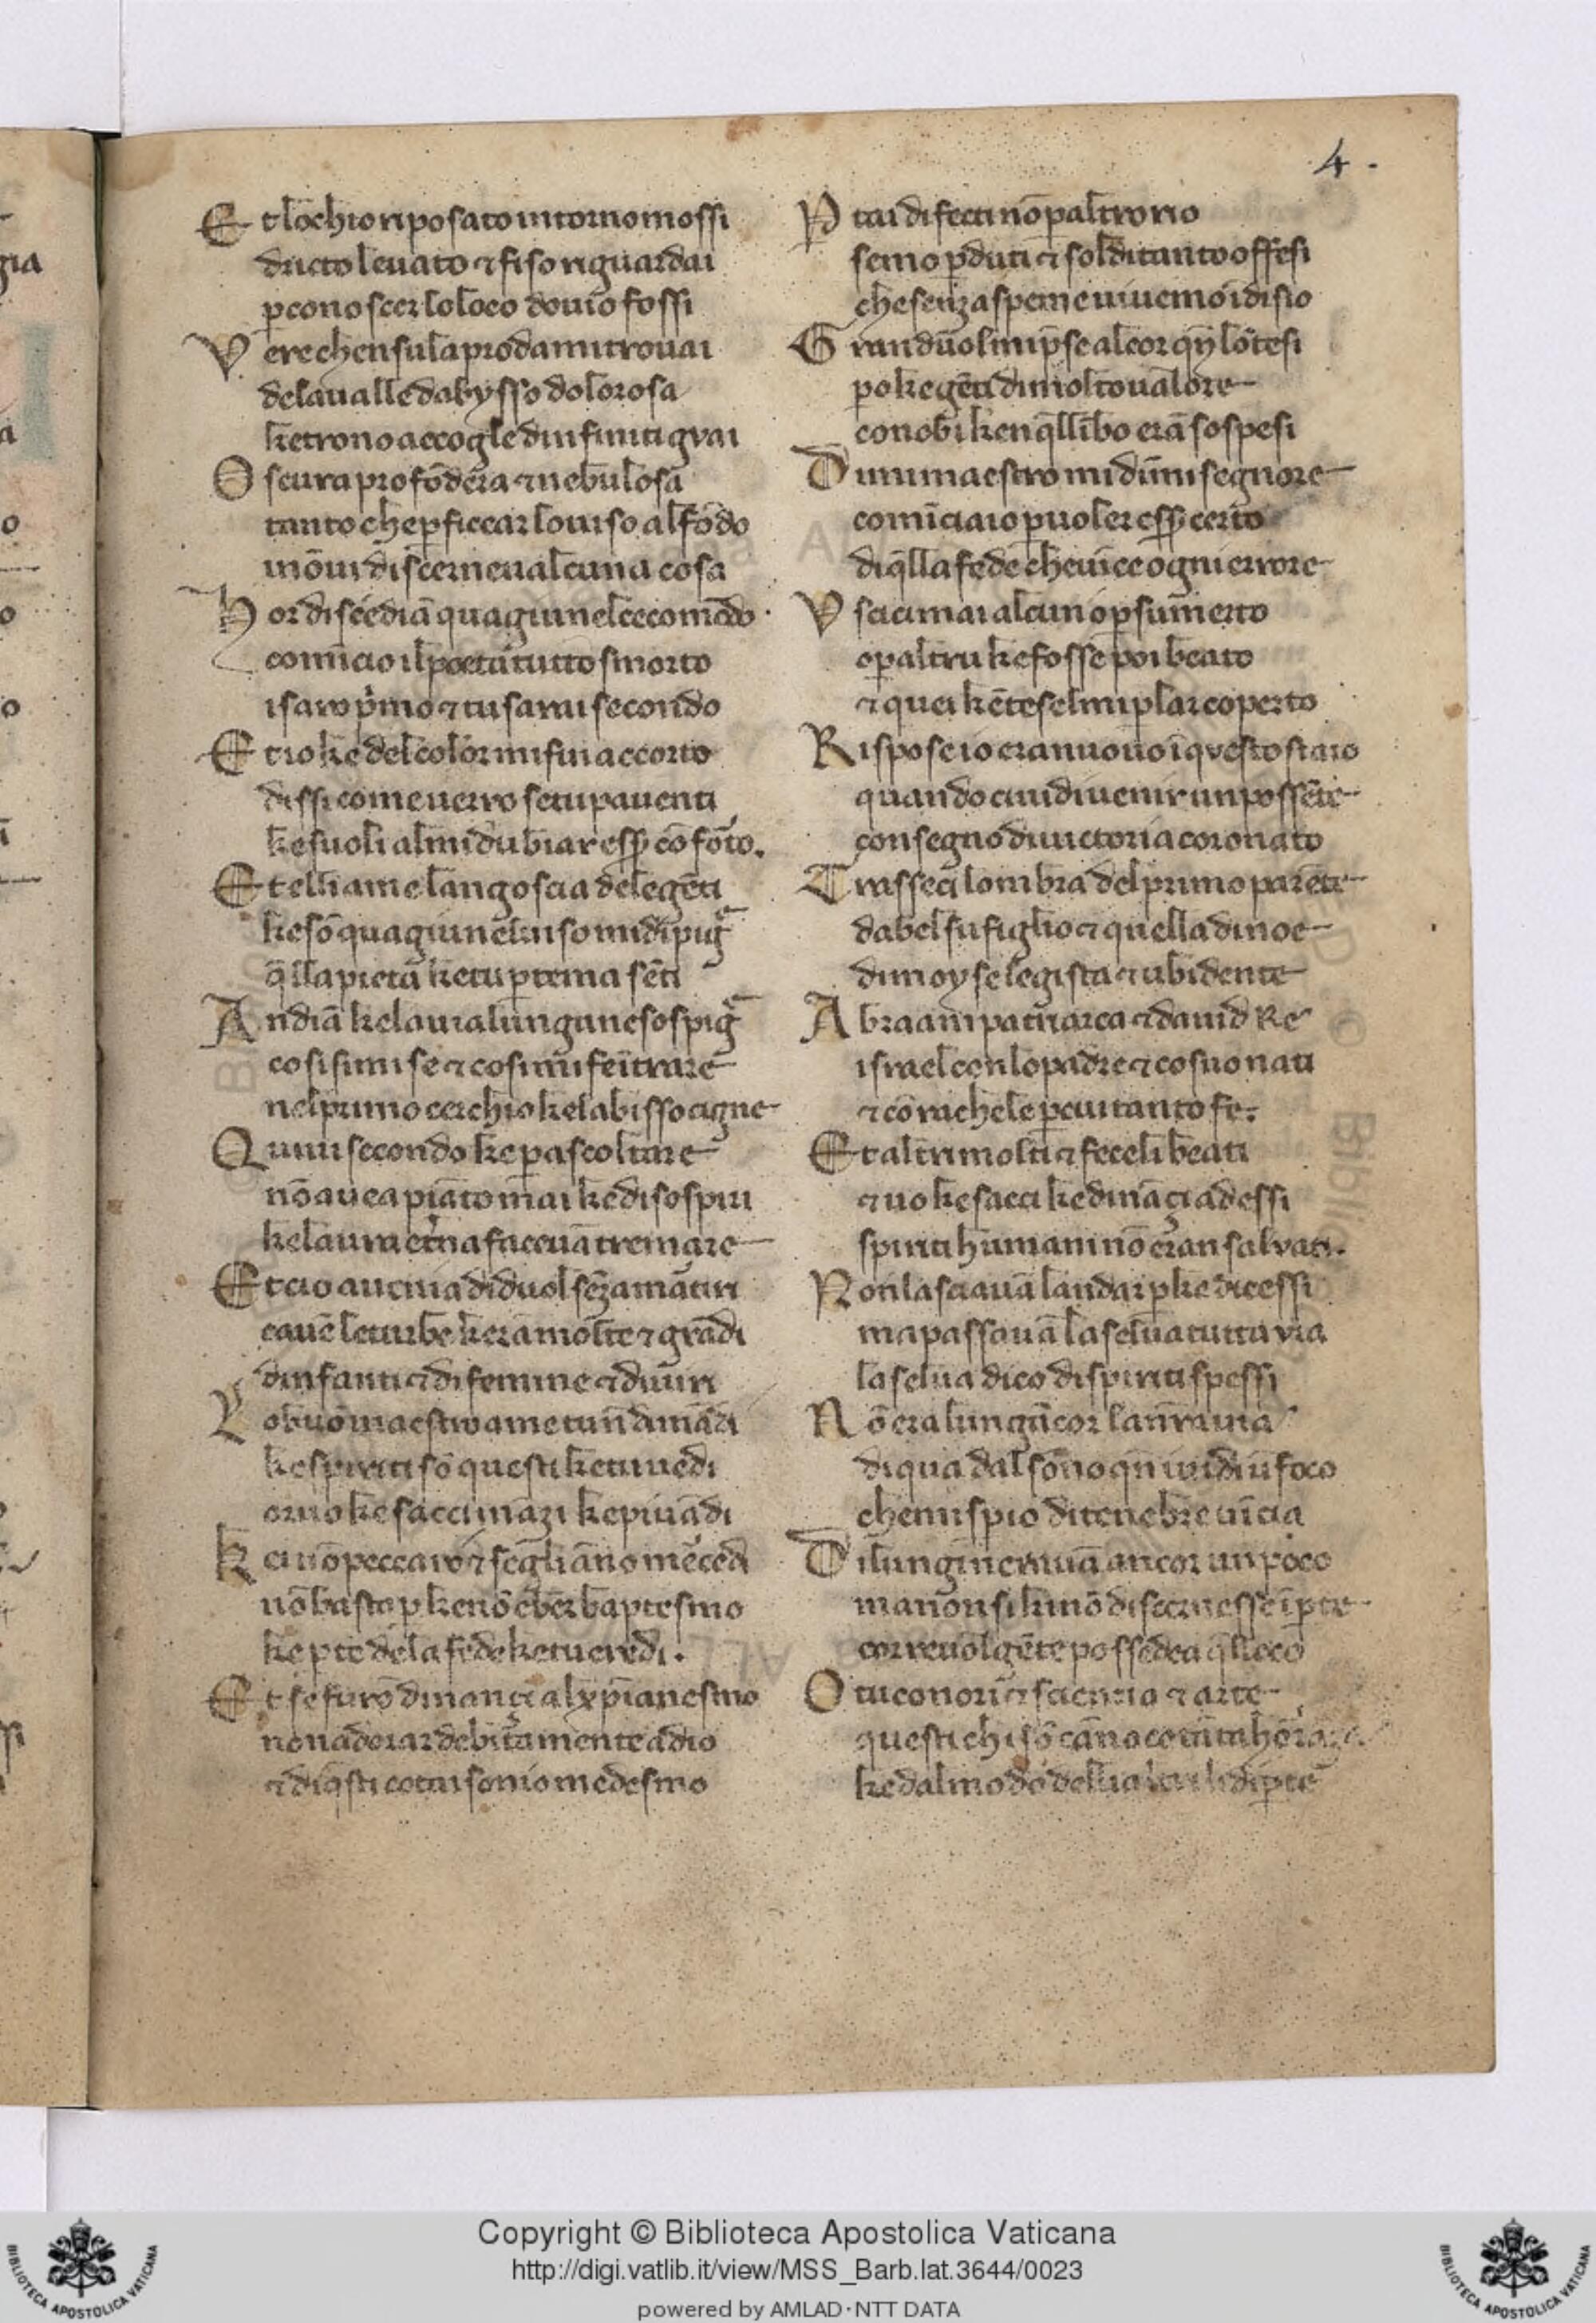 4.
Et lochio riposato intorno mossi
dricto leuato ⁊ fiso riguardai
p conoscer lo loco douio fossi
Vere che nsula proda mi trouai
de la ualle dabysso dolorosa
ke trono accogle dinfiniti guai
Oscura profōdera ⁊ nebulosa
tanto che p ficcar lo uiso al fōdo
i nō ui discerneua alcuna cosa
Hor discēdiā qua giu nel ceco mōdo
comīcio il poeta tutto smorto
i saro pͥmo ⁊ tu sarai secondo
Et io ke del color mi fui accorto
dissi come uerro se tu pauenti
ke suoli al mi dubiar ess̄ cōfōto.
Et elli a me langoscia de le gēti
ke sō qua giu nel uiso mi dipīgͣ
q̄lla pieta ke tu p tema sēti
Andiā ke la uia lunga ne sospīgͣ
cosi si mise ⁊ cosi mi fe ītrare
nel primo cerchio ke labisso cigne
Quiui secondo ke p ascoltare
nō auea piāto mai ke di sospiri
ke laura etͥna faceuā tremare
Et cio auenia di duol sēza martiri
cauē le turbe kerā molte ⁊ grādi
dinfanti ⁊ di femine ⁊ duiri
Lo buō maestro a me tu n̄ dimādi
ke spiriti sō questi ke tu uedi
or uo ke sacci inazi ke piu ādi
Kei nō peccaro ⁊ segli āno mēcedi
nō basta p ke nō ebber baptesmo
ke pte de la fede ke tu credi.
Et se furō dinanҫi al xp̄ianesmo
non adorar debitamente a dio
⁊ di q̄sti cotai sonio medesmo
P tai difecti nō p altro rio
semo pduti ⁊ sol di tanto offesi
che senza speme uiuemo ī disio
Gran duol mi pͥse al cor qn̄ lo ītesi
po ke gēti di molto ualore
conobbi ken q̄l libo erā sospesi
Dimmi maestro mi dimmi segnore
comīciaio p uoler ess̄ certo
di q̄lla fede che uīce ogni errore
Uscicci mai alcuno p su merto
o p altru ke fosse poi beato
⁊ quei kētesel mi plar coperto
Rispose io era nuouo ī questo stato
quando ci uidi uenir un possēte
con segno di uictoria coronato
Trasseci lombra del primo parēte
dabel su figlio ⁊ quella di noe
di moyse legista ⁊ ubidente
Abraam patriarca ⁊ dauid Re
israel con lo padre ⁊ co suo nati
⁊ cō rachele p cui tanto fe.
Et altri molti ⁊ feceli beati
⁊ uo ke sacci ke dināҫi ad essi
spiriti humani nō eran saluati.
Non lasciauā landar p ke dicessi
ma passauā la selua tuttauia
la selua dico di spiriti spessi
Nō era lungi ūcor la nr̄a uia
di qua dal sōno qn̄ i uidi ū foco
chemispio di tenebre uīcia
Di lungi nerauā ancor un poco
ma non si ki nō discernesse ī pte
correuol gēte possedea q̄l loco
O tu conori ⁊ scientia ⁊ arte
questi chi sō cāno cotāta hōrāҫa
ke dal modo delli altri li dipte
Copyright © Biblioteca Apostolica Vaticana
http://digi.vatlib.it/view/MSS_Barb.lat.3644/0023
powered by AMLAD·NTT DATA
BIBLIOTECA APOSTOLICA VATICANA
BIBLIOTECA APOSTOLICA VATICANA